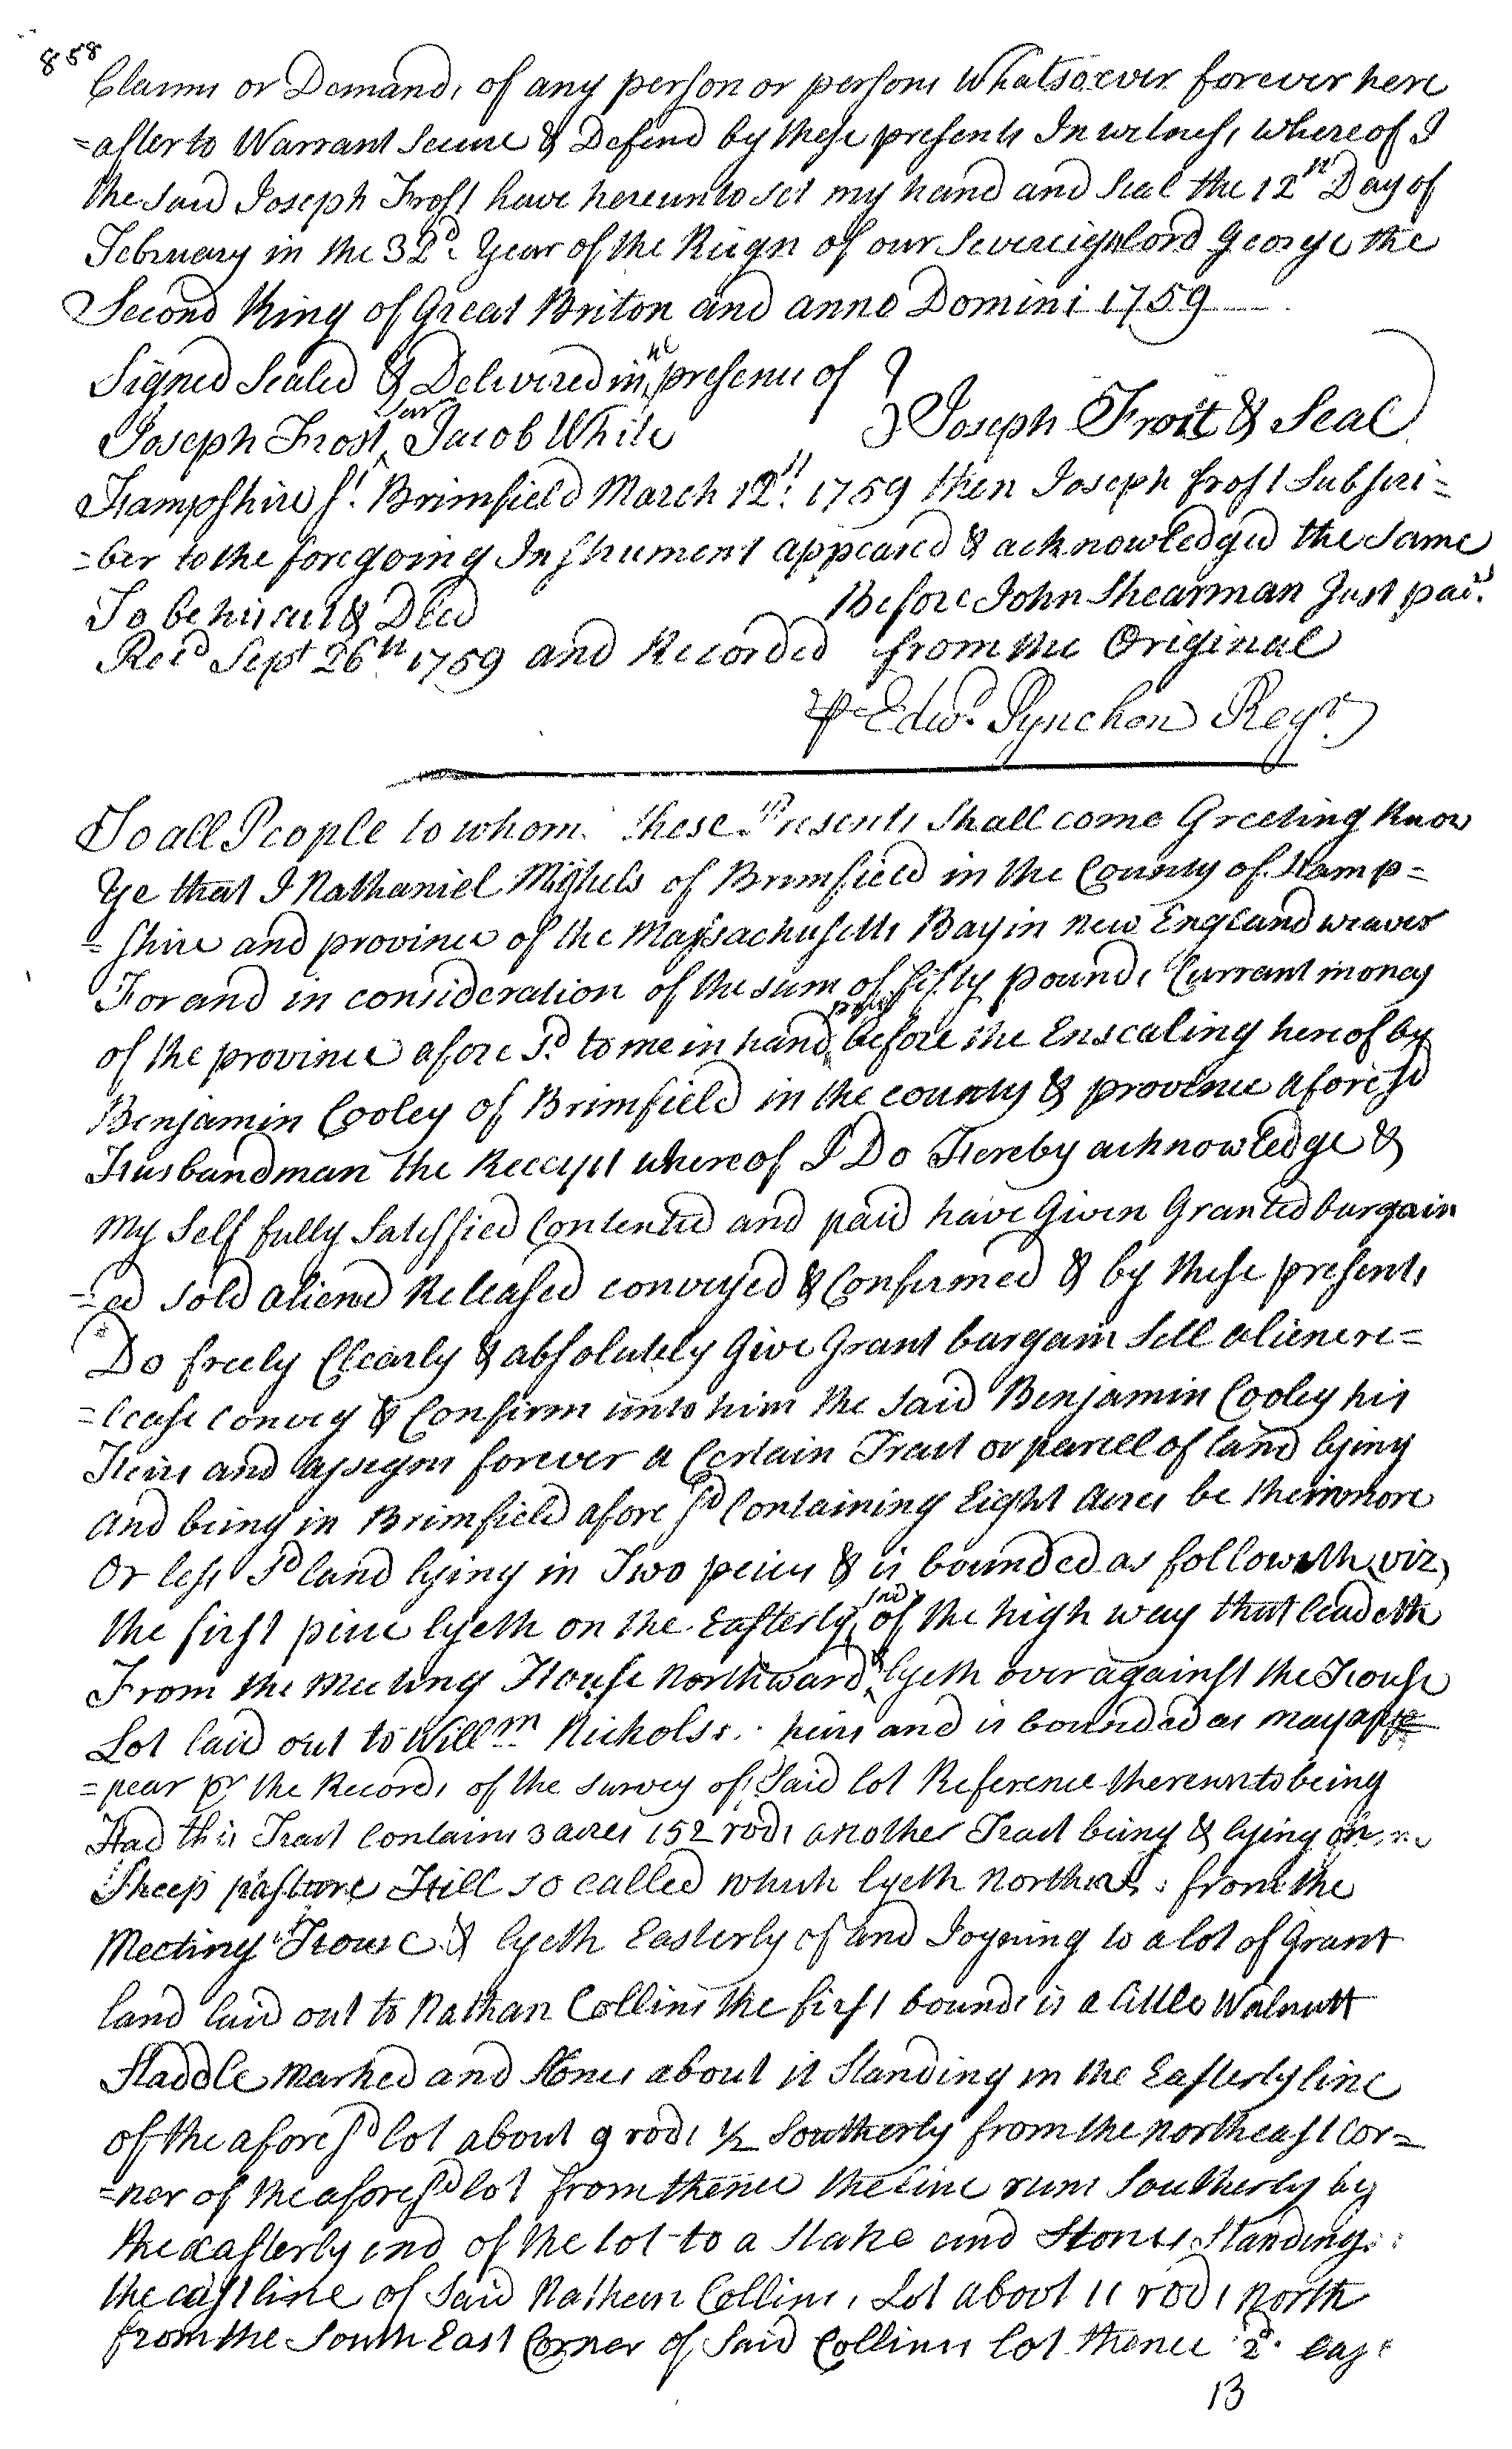 858
Claims or Demands of any person or persons Whatsoever forever here
=after to Warrant Secure & Defend by these presents In witness whereof I
the said Joseph Frost have hereunto set my hand and Seal the 12th Day of
February in the 32d Year of the Reign of our Sovereign lord George the
Second King of Great Briton and anno Domini 1759
Signed Sealed & Delivered in the presence of
Joseph Frost Junr Jacob White } Joseph Frost & Seal
Hampshire ss. Brimfield March 12th 1759 then Joseph Frost Subscri=
=ber to the foregoing Instrument appeared & acknowledged the same
To be his act & Deed Before John Shearman Just pacis
Recd Sept 26th 1759 and Recorded from the Original
p Edwd Pynchon Regr
To all People to whom these Presents Shall come Greeting Know
Ye that I Nathaniel Mighels of Brimfield in the County of Hamp=
=shire and province of the Massachusetts Bay in New England weaver
For and in consideration of the sum of fifty pounds Currant money
of the province afore sd to me in hand paid before the Ensealing hereof by
Benjamin Cooley of Brimfield in the county & province aforesd
Husbandman the Receipt whereof I Do Hereby acknowledge &
my Self fully Satisfied Contented and paid have Given Granted bargain
=ed sold aliend Released conveyed & Confirmed & by these presents
Do freely Clearly & absolutely Give Grant bargain Sell aliene re=
=lease convey & Confirm unto him the said Benjamin Cooley his
Heirs and assigns forever a Certain Tract or parcell of land lying
and being in Brimfield afore sd Containing Eight acres be there more
Or less sd land lying in Two peices & is bounded as followeth viz
the first peice lyeth on the Easterly side of the high way that leadeth
From the Meeting House Northward & lyeth over against the House
Lot laid out to Willm Nichols's heirs and is bounded as may ap
=pear pr the Records of the survey of Said lot Reference thereunto being
Had this Tract Contains 3 acres 152 rods another Tract being & lying on
Sheep pasture Hill so called which lyeth from the
Meeting House & lyeth Easterly of and Joyning to a lot of Grant
land laid out to Nathan Collins the first bounds is a little Walnutt
Staddle marked and Stones about it Standing in the Easterly line
of the aforesd lot about 9 rods 1/2 Southerly from the northeast Cor=
=ner of the aforesd lot from thence the line runs Southerly by
the easterly end of the lot to a Stake and Stones Standing
the east line of Said Nathan Collins Lot about 11 rods North
from the South East Corner of Said Collins lot thence 2d
13